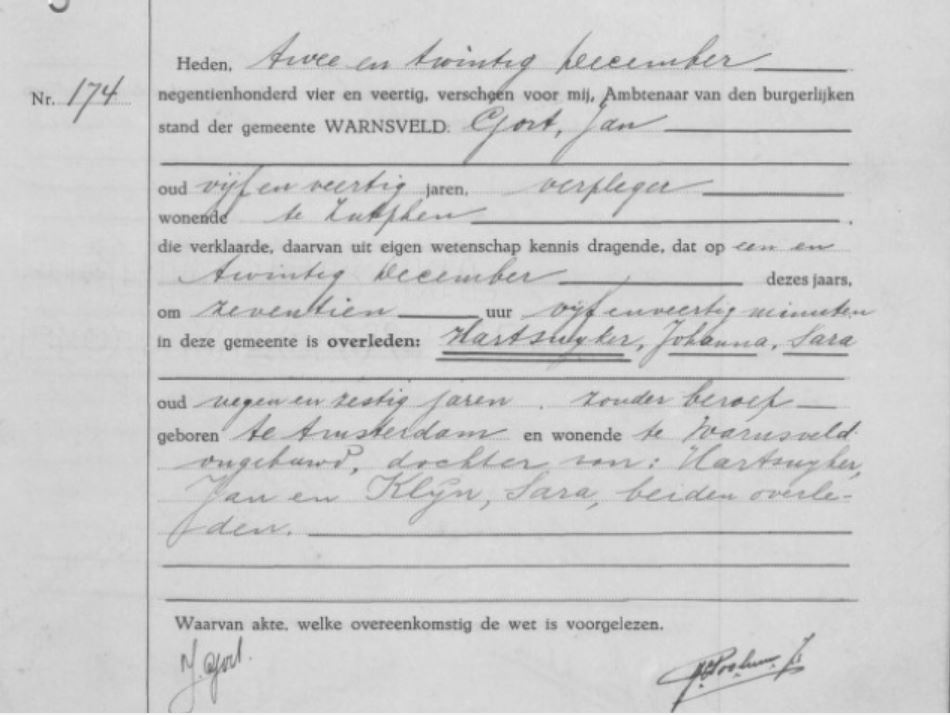 Heden, twee en twintig December
Nr. 174
negentienhonderd vier en veertig, verscheen voor mij, Ambtenaar van den burgerlijken
stand der gemeente WARNSVELD: Gort, Jan
oud vijf en veertig jaren, verpleger
wonende te Zutphen
die verklaarde, daarvan uit eigen wetenschap kennis dragende, dat op een en
twintig December dezes jaars,
om zeventien uur vijf en veertig minuten
in deze gemeente is overleden: Hartsuyker, Johanna, Sara
oud negen en zestig jaren. zonder beroep
geboren te Amsterdam en wonende te Warnsveld
ongehuwd, dochter van: Hartsuyker,
Jan en Klijn, Sara, beiden overle-
den.
Waarvan akte, welke overeenkomstig de wet is voorgelezen.
J. Gort.